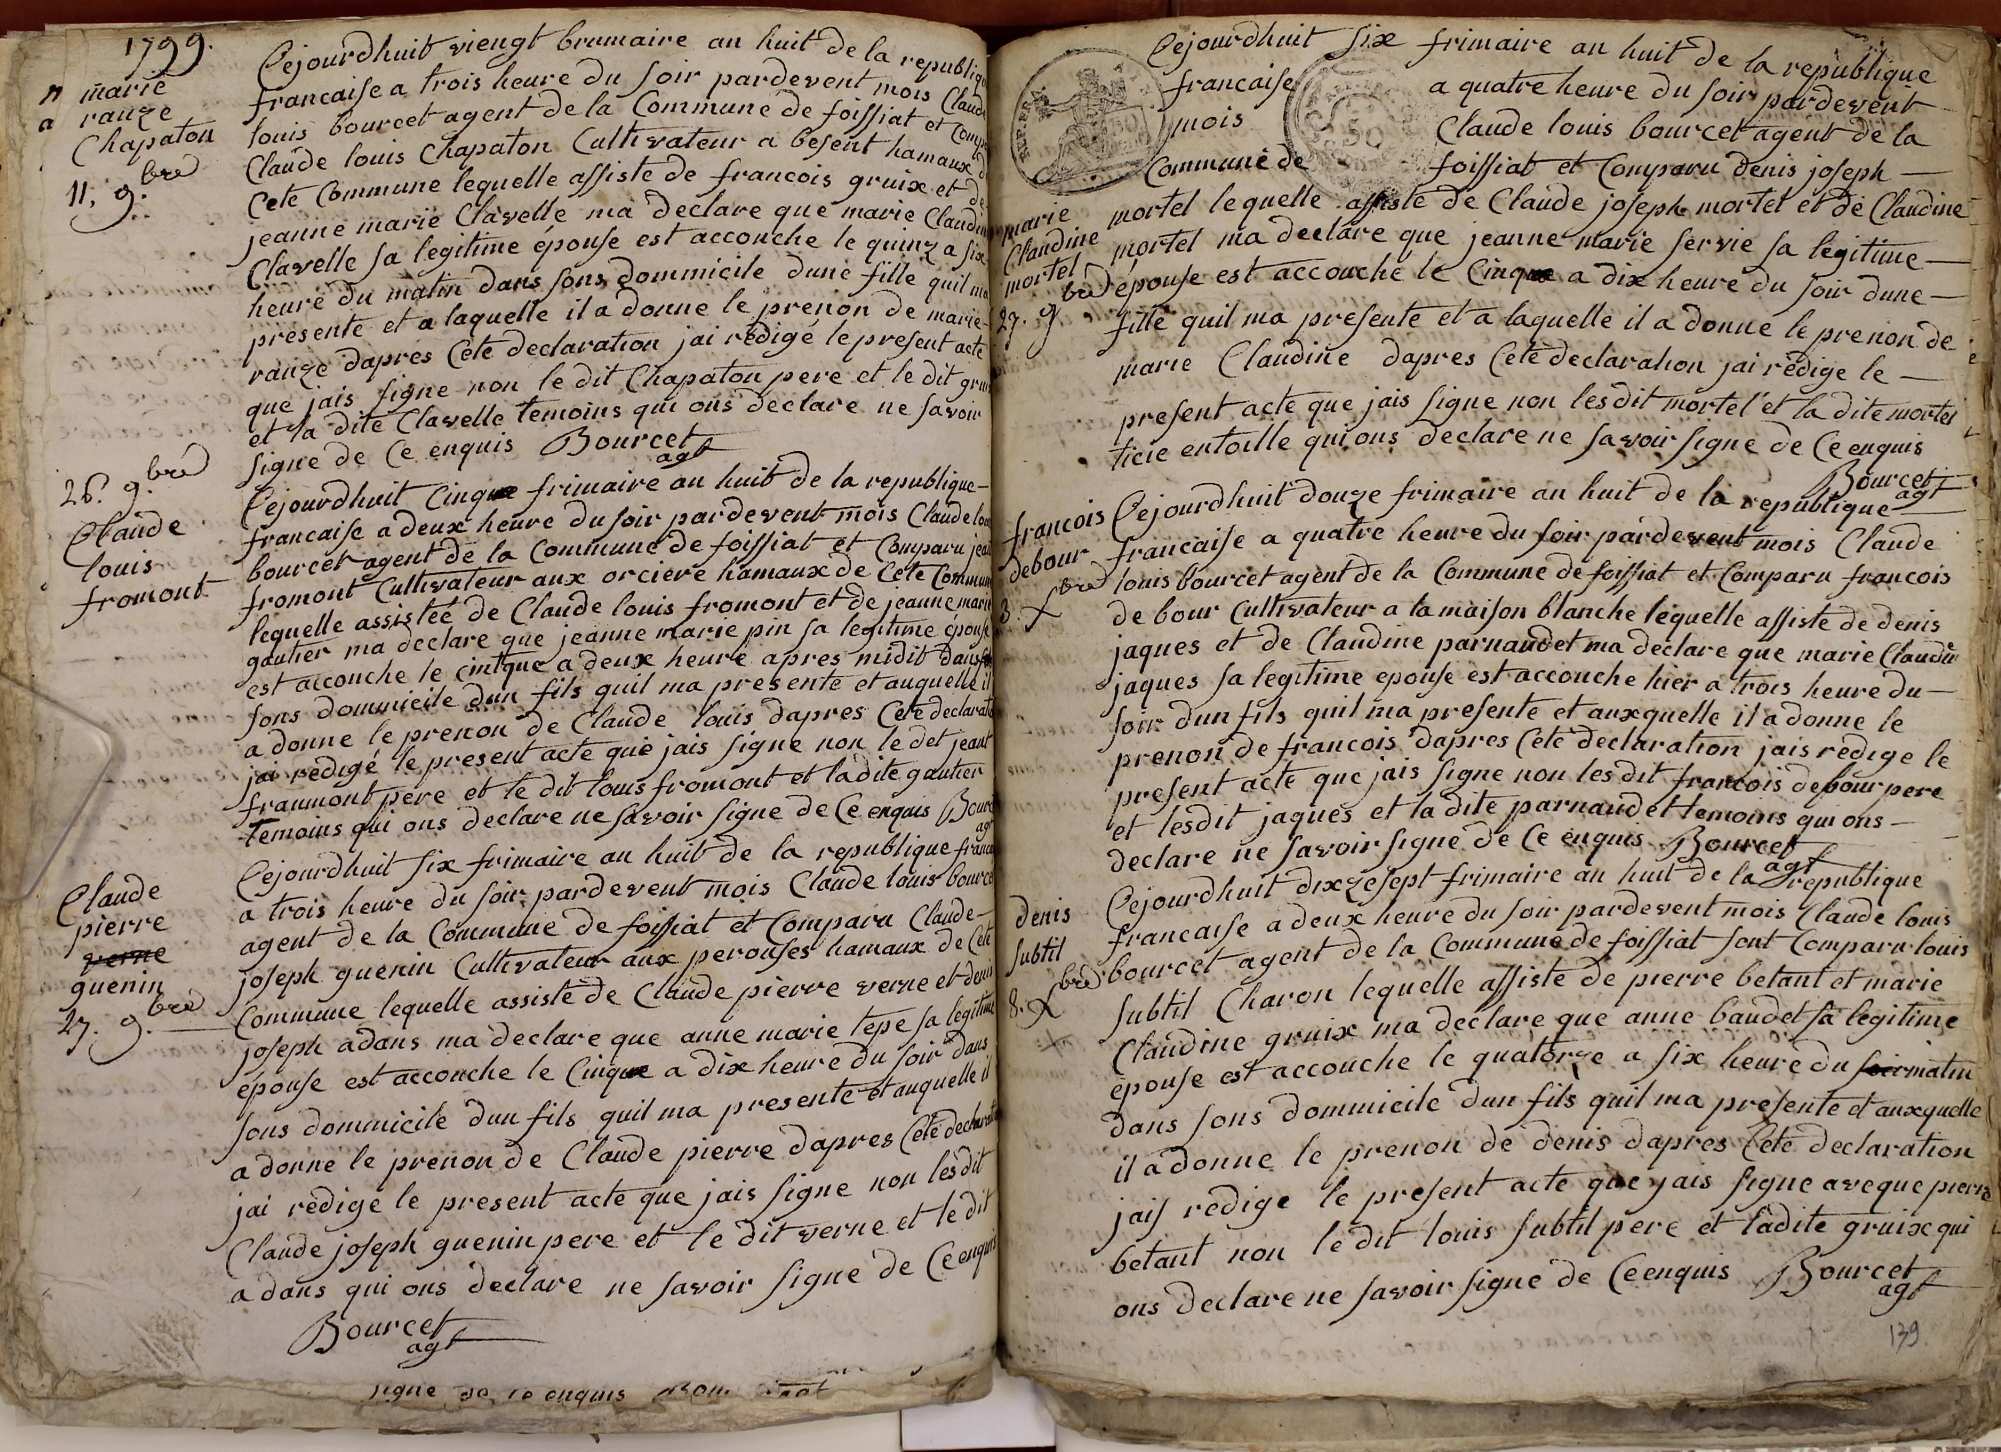 1799.
n marie
a ranze
Chapaton
11, 9.bre
Cejourdhuit viengt brumaire an huit de la republique
francaise a trois heure du soir pardevent mois Claude
louis bourcet agent de la Commune de foissiat et
Claude louis Chapaton Cultivateur a besent hamaux
Cete Commune lequelle assiste de francois gruix et de
jeanne marie Clavelle ma declare que marie
Clavelle sa legitime épouse est accouche le quinz a six
heure du matin dans sons dommicile dune fille quil ma
presente et a laquelle il a donne le prenon de marie
ranze dapres Cete declaration jai redigé le present acte
que jais signe non le dit Chapaton pere et le dit
et la dite Clavelle temoins qui ons declare ne savoir
signe de Ce enquis Bourcet
agt
26. 9.bre
Claude
louis
fromont
Cejourdhuit Cinque frimaire an huit de la republique
francaise a deux heure du soir pardevent mois Claude
bourcet agent de la Commune de foissiat et Comparu
fromont Cultivateur aux orciere hamaux de Cete
lequelle assistée de Claude louis fromont et de jeanne marie
gautier ma declare que jeanne marie pin sa legitime épouse
est accouche le cintque a deux heure apres midit dans
sons dommicile dun fils quil ma presente et auquelle il
a donne le prenon de Claude louis dapres Cete
jai redigé le present acte que jais signe non le det jean
fraumont pere et le dit louis fromont et ladite gautier
temoins qui ons declare ne savoir signe de Ce enquis
agt
Claude
pierre
verne
guenin
27. 9.bre
Cejourdhuit six frimaire an huit de la republique
a trois heure du soir pardevent mois Claude louis bource
agent de la Commune de foissiat et Comparu Claude
joseph guenin Cultivateur aux perouses hamaux de Cete
Commune lequelle assiste de Claude pierre verne et denis
joseph adans ma declare que anne marie tepe sa legitime
épouse est accouche le Cinque a dix heure du soir dans
sons dommicile dun fils quil ma presente et auquelle il
a donne le prenon de Claude pierre dapres Cete
jai redigé le present acte que jais signe non lesdit
Claude joseph guenin pere et le dit verne et le dit
adans qui ons declare ne savoir signe de Ce enquis
Bourcet
agt
signe de ce enquis
Cejourdhuit six frimaire an huit de la republique
francaise a quatre heure du soir pardevent
mois Claude louis bourcet agent de la
Commune de foissiat et Comparu denis joseph
50
marie
Claudine
mortel
27. 9.bre
mortel lequelle assiste de Claude joseph mortel et de Claudine
mortel ma declare que jeanne marie servie sa legitime
épouse est accouche le Cinque a dix heure du soir dune
fille quil ma presente et a laquelle il a donne le prenon de
marie Claudine dapres Cete declaration jai redige le
present acte que jais signe non lesdit mortel et la dite mortel
qui ons declare ne savoir signe de Ce enquis
Bourcet
agt
francois
debour
3. Xbre
Cejourdhuit douze frimaire an huit de la republique
francaise a quatre heure du soir pardevent mois Claude
louis bourcet agent de la Commune de foissiat et Comparu francois
de bour Cultivateur a la maison blanche lequelle assiste de denis
jaques et de Claudine parnaudet ma declare que marie Claudine
jaques sa legitime epouse est accouche hier a trois heure du
soir dun fils quil ma presente et auxquelle il a donne le
prenon de francois dapres Cete declaration jais redige le
present acte que jais signe non lesdit francois debour pere
et lesdit jaques et la dite parnaudet temoins qui ons
declare ne savoir signe de Ce enquis Bourcet
agt
denis
subtil
8. Xbre
Cejourdhuit dixzesept frimaire an huit de la republique
francaise a deux heure du soir pardevent mois Claude louis
bourcet agent de la Commune de foissiat sont Comparu louis
subtil Charon lequelle assiste de pierre betant et marie
Claudine gruix ma declare que anne baudet sa legitime
épouse est accouche le quatorze a six heure du soir matin
dans sons dommicile dun fils quil ma presente et auxquelle
il a donne le prenon de denis dapres Cete declaration
jais redige le present acte que jais signe aveque pierre
betant non le dit louis subtil pere et ladite gruix qui
ons declare ne savoir signe de Ce enquis Bourcet
agt
139